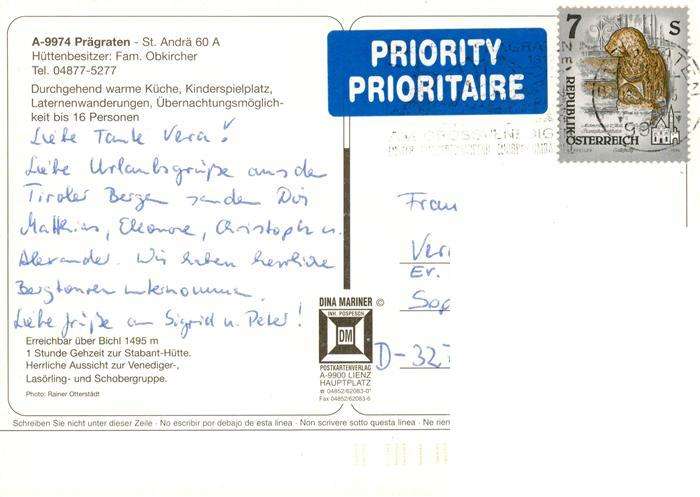 A-9974 Prägraten - St. Andrä 60 A
Hüttenbesitzer: Fam. Obkircher
Tel. 04877-5277
Durchgehend warme Küche, Kinderspielplatz,
Laternenwanderungen, Übernachtungsmöglich-
keit bis 16 Personen
Liebe Tante Vera!
Liebe Urlaubsgrüße aus den
Tiroler Bergen senden Dir
Matthias, Eleonore, Christoph u.
Alexander. Wir haben herrliche
Bergtouren unternommen.
Liebe Grüße an Sigrid u. Peter!
Erreichbar über Bichl 1495 m
1 Stunde Gehzeit zur Stabant-Hütte.
Herrliche Aussicht zur Venediger-,
Lasörling- und Schobergruppe.
Photo: Rainer Otterstädt
PRIORITY
PRIORITAIRE
7 S
REPUBLIK
ÖSTERREICH
Frau
Ver
Ev.
Sop
D-32
DINA MARINER ©
INH. POSPESCH
DM
POSTKARTENVERLAG
A-9900 LIENZ
HAUPTPLATZ
04852/62083-0*
Fax 04852/62083-6
Schreiben Sie nicht unter dieser Zeile - No escribir por debajo de esta linea - Non scrivere sotto questa linea - Ne rien